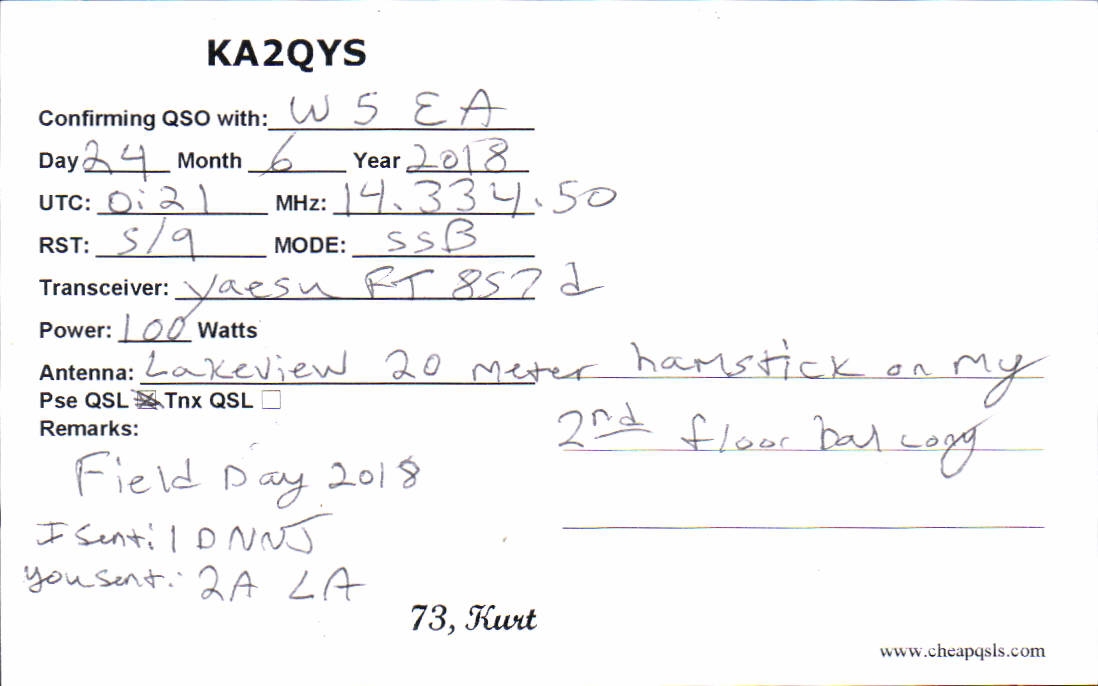 KA2QYS
Confirming QSO with: W5EA
Day 24 Month 6 Year 2018
UTC: 0:21 MHz: 14.334.50
RST: 5/9 MODE: SSB
Transceiver: Yaesu FT 857 d
Power: 100 Watts
Antenna: Lakeview 20 meter hamstick on my
2nd floor balcony
Pse QSL ☒ Tnx QSL ☐
Remarks:
Field Day 2018
I sent: 1D NNJ
You sent: 2A LA
73, Kurt
www.cheapqsls.com